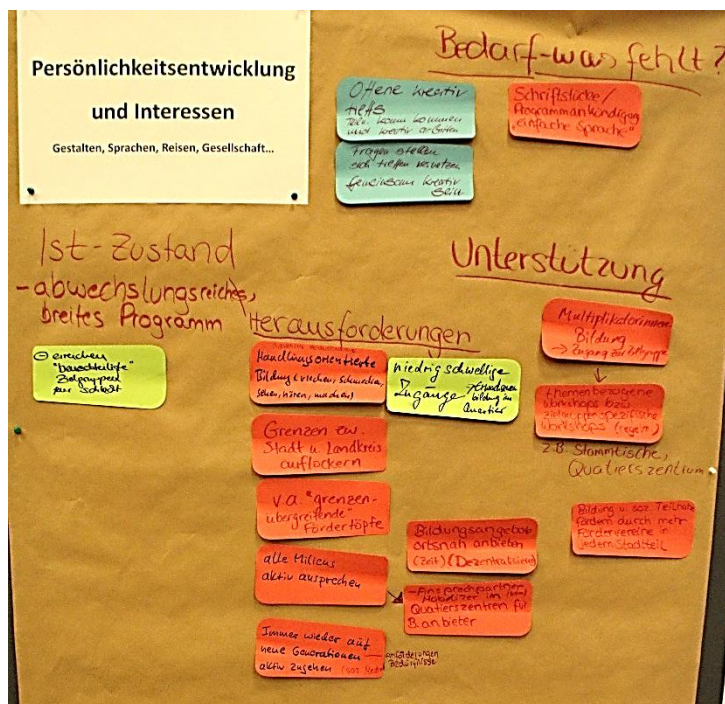 Persönlichkeitsentwicklung
und Interessen
Gestalten, Sprachen, Reisen, Gesellschaft...
Bedarf-was fehlt?
Offene kreativ
treffs
kommen
und kreativ arbeiten
Fragen stellen
sich treffen vernetzen
Gemeinsam kreativ
sein
Schriftstücke/
Programmankündigung
"einfache Sprache"
Ist-Zustand
- abwechslungsreiches,
breites Programm
erreichen
"benachteiligte"
Zielgruppen
nur schlecht
Herausforderungen
Handlungsorientierte
Bildung (riechen, schmecken,
sehen, hören, machen)
niedrigschwellige
Zugänge
bildung im
Quartier
Grenzen zw.
Stadt u. Landkreis
auflockern
v.a. "grenzen-
übergreifende"
Fördertöpfe
alle Milieus
aktiv ansprechen
Bildungsangebot
ortsnah anbieten
(Zeit) (Dezentralisiert)
- Ansprechpartner
Mobilizer im
Quatierszentren für
B.anbieter
Immer wieder auf
neue Generationen
aktiv zugehen
Anforderungen
Bedürfnisse
Unterstützung
Multiplikatorinnen
Bildung
→ Zugang zur Zielgruppe
themenbezogene
Workshops bzw.
zielgruppenspezifische
Workshops
z.B. Stammtische,
Quatierszentrum
Bildung u. soz. Teilhabe
fördern durch mehr
Fördervereine in
jedem Stadtteil